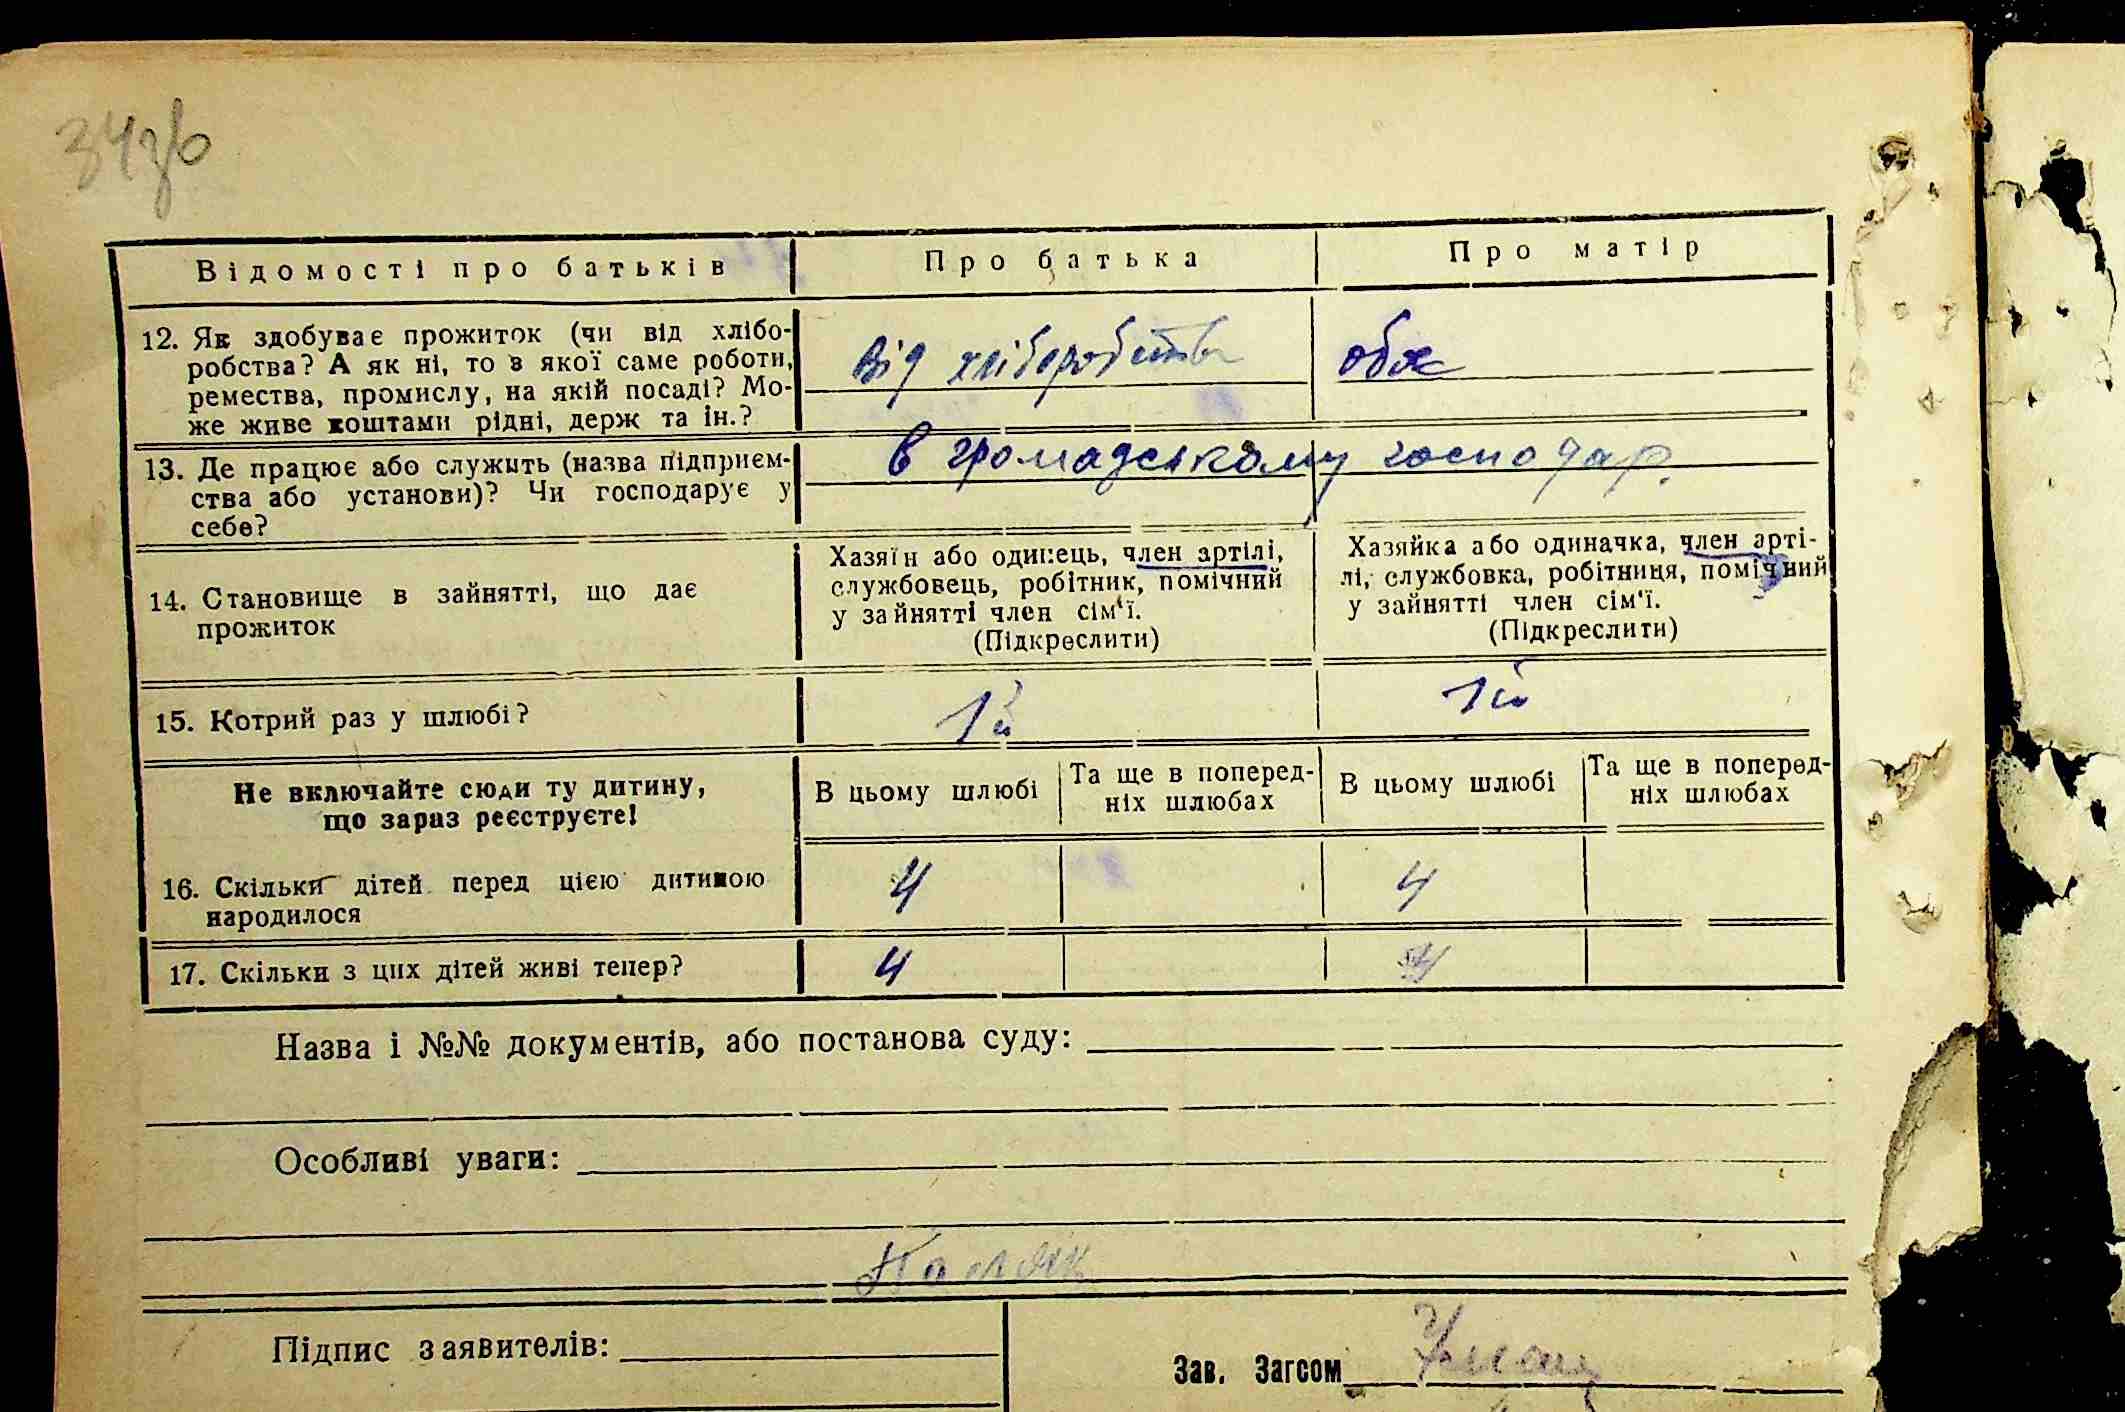 34зв
Відомості про батьків Про батька Про матір
12. Як здобуває прожиток (чи від хлібо-
робства? А як ні, то з якої саме роботи,
ремества, промислу, на якій посаді? Мо-
же живе коштами рідні, держ та ін.?
від хліборобства обоє
13. Де працює або служить (назва підприєм-
ства або установи)? Чи господарує у
себе?
в громадському господар.
14. Становище в зайнятті, що дає
прожиток
Хазяїн або одинець, член артілі,
службовець, робітник, помічний
у зайнятті член сім'ї.
(Підкреслити)
Хазяйка або одиначка, член арті-
лі, службовка, робітниця, помічний
у зайнятті член сім'ї.
(Підкреслити)
15. Котрий раз у шлюбі? 1й 1й
Не включайте сюди ту дитину,
що зараз реєструєте!
В цьому шлюбі
Та ще в поперед-
ніх шлюбах
В цьому шлюбі
Та ще в поперед-
ніх шлюбах
16. Скільки дітей перед цією дитиною
народилося
4 4
17. Скільки з цих дітей живі тепер? 4 4
Назва і №№ документів, або постанова суду:
Особливі уваги:
Підпис заявителів:
Зав. Загсом